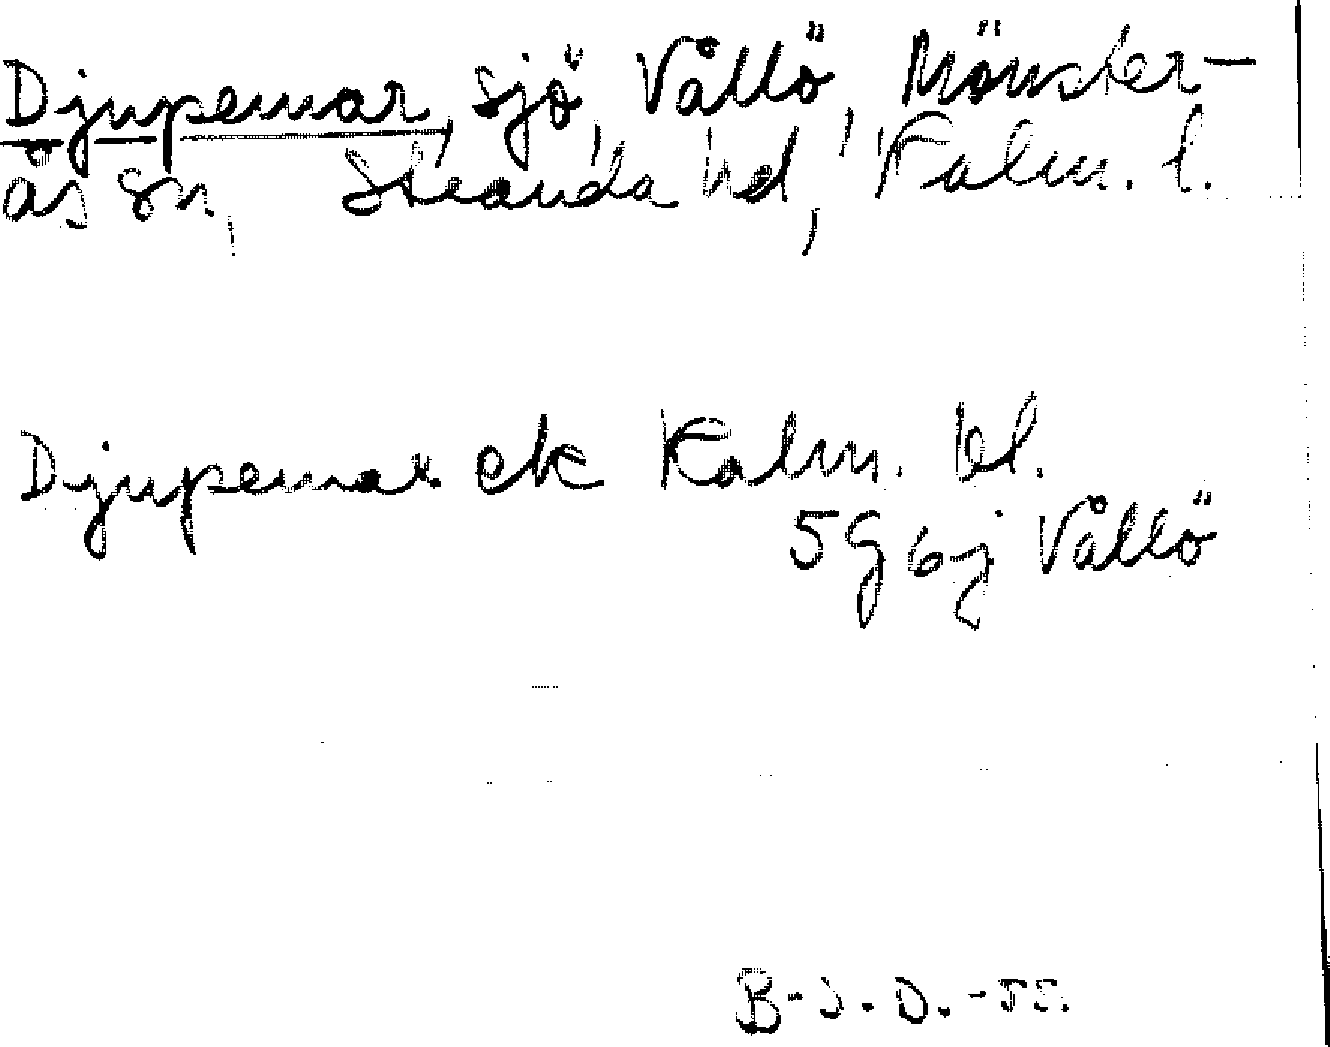 Djupemar, sjö, Vållö, Mönster-
ås sn, Stranda hd, Kalm. l.
Djupemar ek Kalm. bl.
5 G 6 j Vållö
B-J.D.-55.